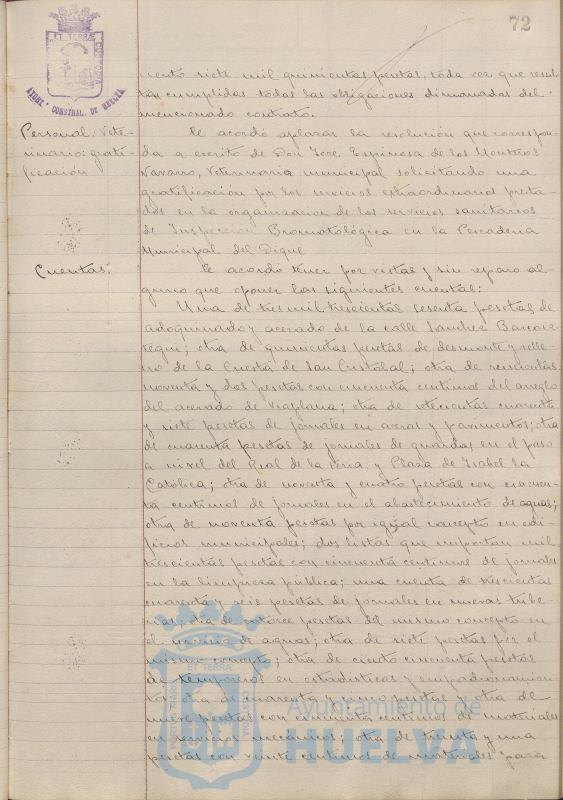 72
ET TERRÆ CUSTODIA
AYUNT. CONSTNAL. DE HUELVA
ciento siete mil quinientas pesetas, toda vez que resul
tan cumplidas todas las obligaciones dimanadas del
mencionado contrato.
Personal: Vete-
rinario: grati-
ficación
Se acordó aplazar la resolución que correspon-
da a escrito de Don José Espinosa de los Monteros
Navarro, Veterinario municipal solicitando una
gratificación por los servicios extraordinarios presta-
dos en la organización de los servicios sanitarios
de Inspección Bromatológica en la Pescadería
Municipal del Dique
Cuentas:
Se acordó tener por vistas y sin reparo al-
guno que oponer las siguientes cuentas:
Una de tres mil trescientas sesenta pesetas, de
adoquinado y acerado de la calle Sanchez Barcaiz-
tegui; otra de quinientas pesetas de desmonte y relle-
no de la Cuesta de San Cristóbal; otra de seiscientas
noventa y dos pesetas con cincuenta centimos del arreglo
del acerado de Viaplana; otra de setecientas cuarenta
y siete pesetas de jornales en aceras y pavimentos; otra
de cuarenta pesetas de jornales de guardas en el paso
a nivel del Real de la feria y Plaza de Isabel la
Católica; otra de noventa y cuatro pesetas con cincuen-
ta centimos de jornales en el abastecimiento de aguas;
otra de noventa pesetas por igual concepto en edi-
ficios municipales; dos listas que importan mil
trescientas pesetas con cincuenta centimos de jornales
en la limpieza pública; una cuenta de trescientas
cuarenta y seis pesetas de jornales en nuevas tube-
rias; otra de catorce pesetas del mismo concepto en
el servicio de aguas; otra de siete pesetas por el
mismo concepto; otra de ciento cincuenta pesetas
de temporeros en estadisticas y empadronamien-
tos; otra de cuarenta y cinco pesetas y otra de
nueve pesetas con cincuenta centimos de materiales
en servicios mecánicos; otra de treinta y una
pesetas con veinte centimos de materiales para
Ayuntamiento de
HUELVA